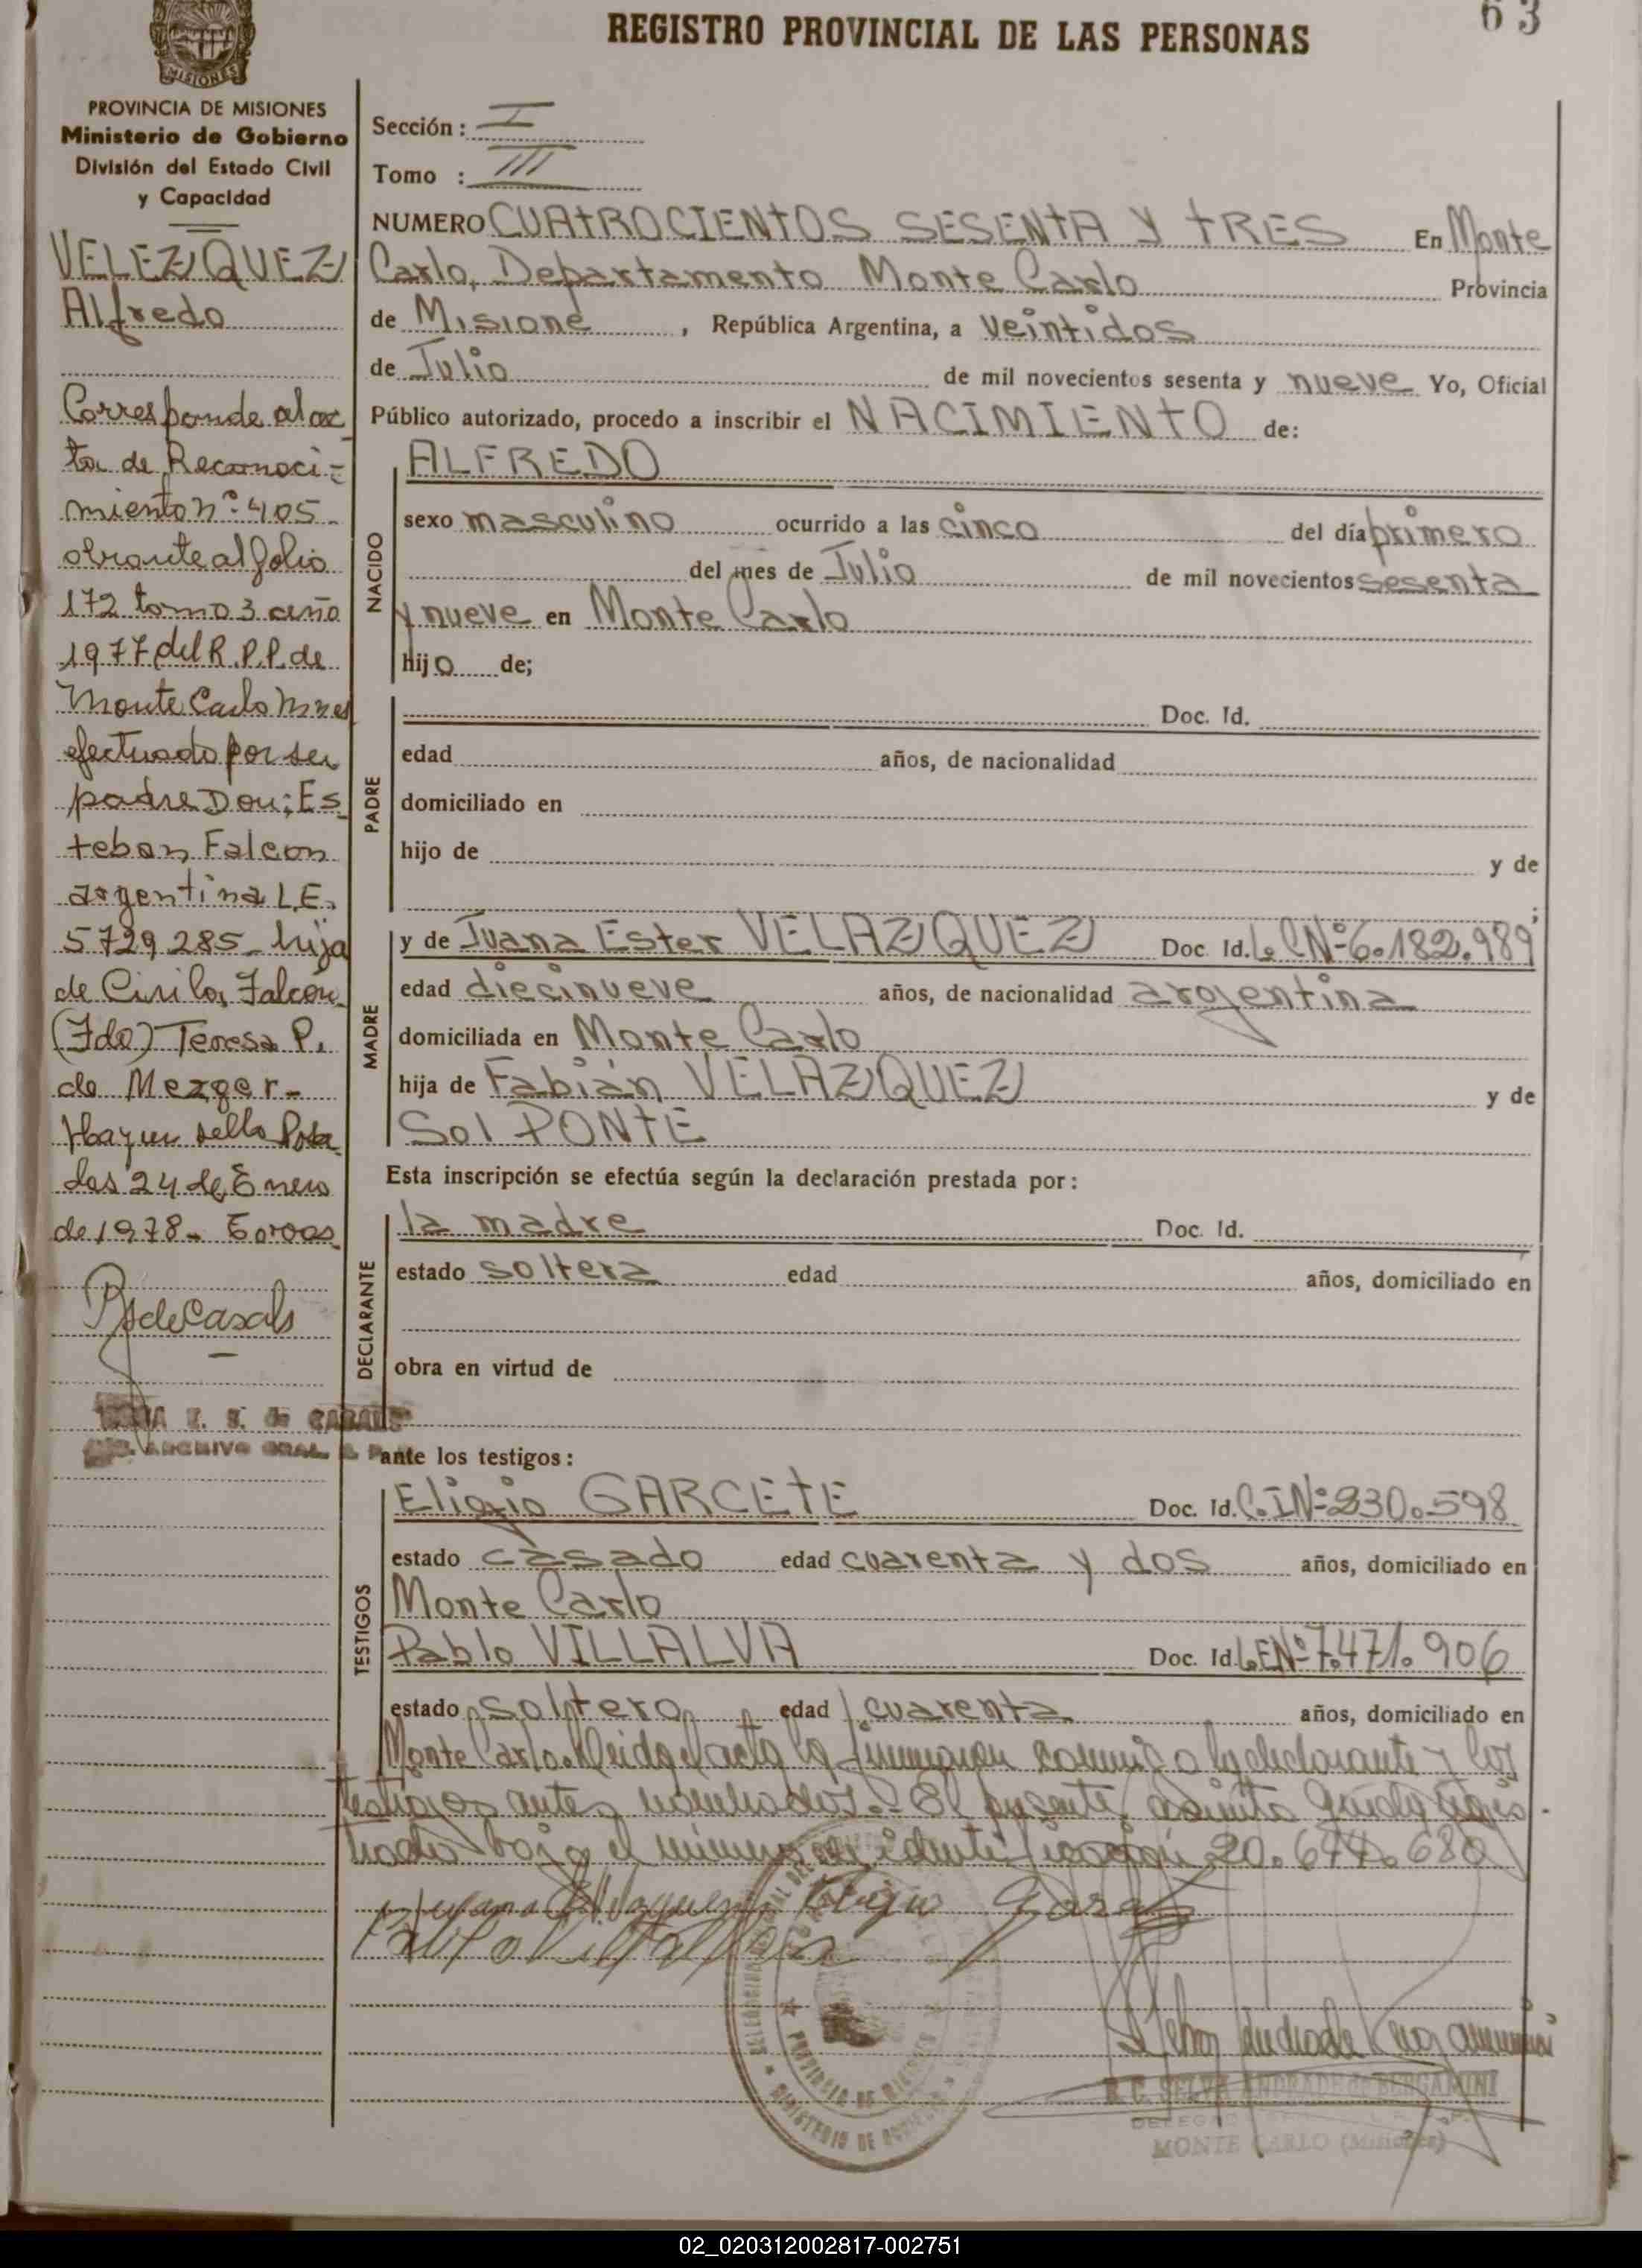 REGISTRO PROVINCIAL DE LAS PERSONAS
63
MISIONES
PROVINCIA DE MISIONES
Ministerio de Gobierno
División del Estado Civil
y Capacidad
VELEZQUEZ
Alfredo
Corresponde al ac
ta de Reconoci-
miento nº 405
obrante al folio
172 tomo 3 año
1977 del R.P.P. de
Monte Carlo Mnes
efectuado por su
padre Don: Es
teban Falcon
argentina L.E.
5729285- hijo
de Cirilo, Falcón
(Fdo) Teresa P.
de Mezger-
Hay un sello Posa
das 24 de Enero
de 1978-
ARCHIVO GRAL.
Sección: I
Tomo : III
NUMERO CUATROCIENTOS SESENTA Y TRES En Monte
Carlo, Departamento Monte Carlo Provincia
de Misione, República Argentina, a veintidos
de Julio de mil novecientos sesenta y nueve Yo, Oficial
Público autorizado, procedo a inscribir el NACIMIENTO de:
NACIDO
ALFREDO
sexo masculino ocurrido a las cinco del día primero
del mes de Julio de mil novecientos sesenta
y nueve en Monte Carlo
hijo de;
PADRE
Doc. Id.
edad años, de nacionalidad
domiciliado en
hijo de y de
;
MADRE
y de Juana Ester VELAZQUEZ Doc. Id. L.C Nº 6.182.989
edad diecinueve años, de nacionalidad argentina
domiciliada en Monte Carlo
hija de Fabián VELAZQUEZ y de
Sol PONTE
Esta inscripción se efectúa según la declaración prestada por:
DECLARANTE
la madre Doc. Id.
estado soltera edad años, domiciliado en
obra en virtud de
ante los testigos:
TESTIGOS
Eligio GARCETE Doc. Id. C.I Nº 230.598
estado casado edad cuarenta y dos años, domiciliado en
Monte Carlo
Pablo VILLALVA Doc. Id. L.E Nº 7.471.906
estado soltero edad cuarenta años, domiciliado en
Monte Carlo. Leida el acta la firmaron conmigo la declarante y los
testigos antes nombrados.- El presente asiento queda regis-
trado bajo el número de identificación 20.644.680
PROVINCIA DE MISIONES
MINISTERIO DE GOBIERNO
R.C. SELVA ANDRADE de BERGAMINI
MONTE CARLO (Misiones)
02_020312002817-002751